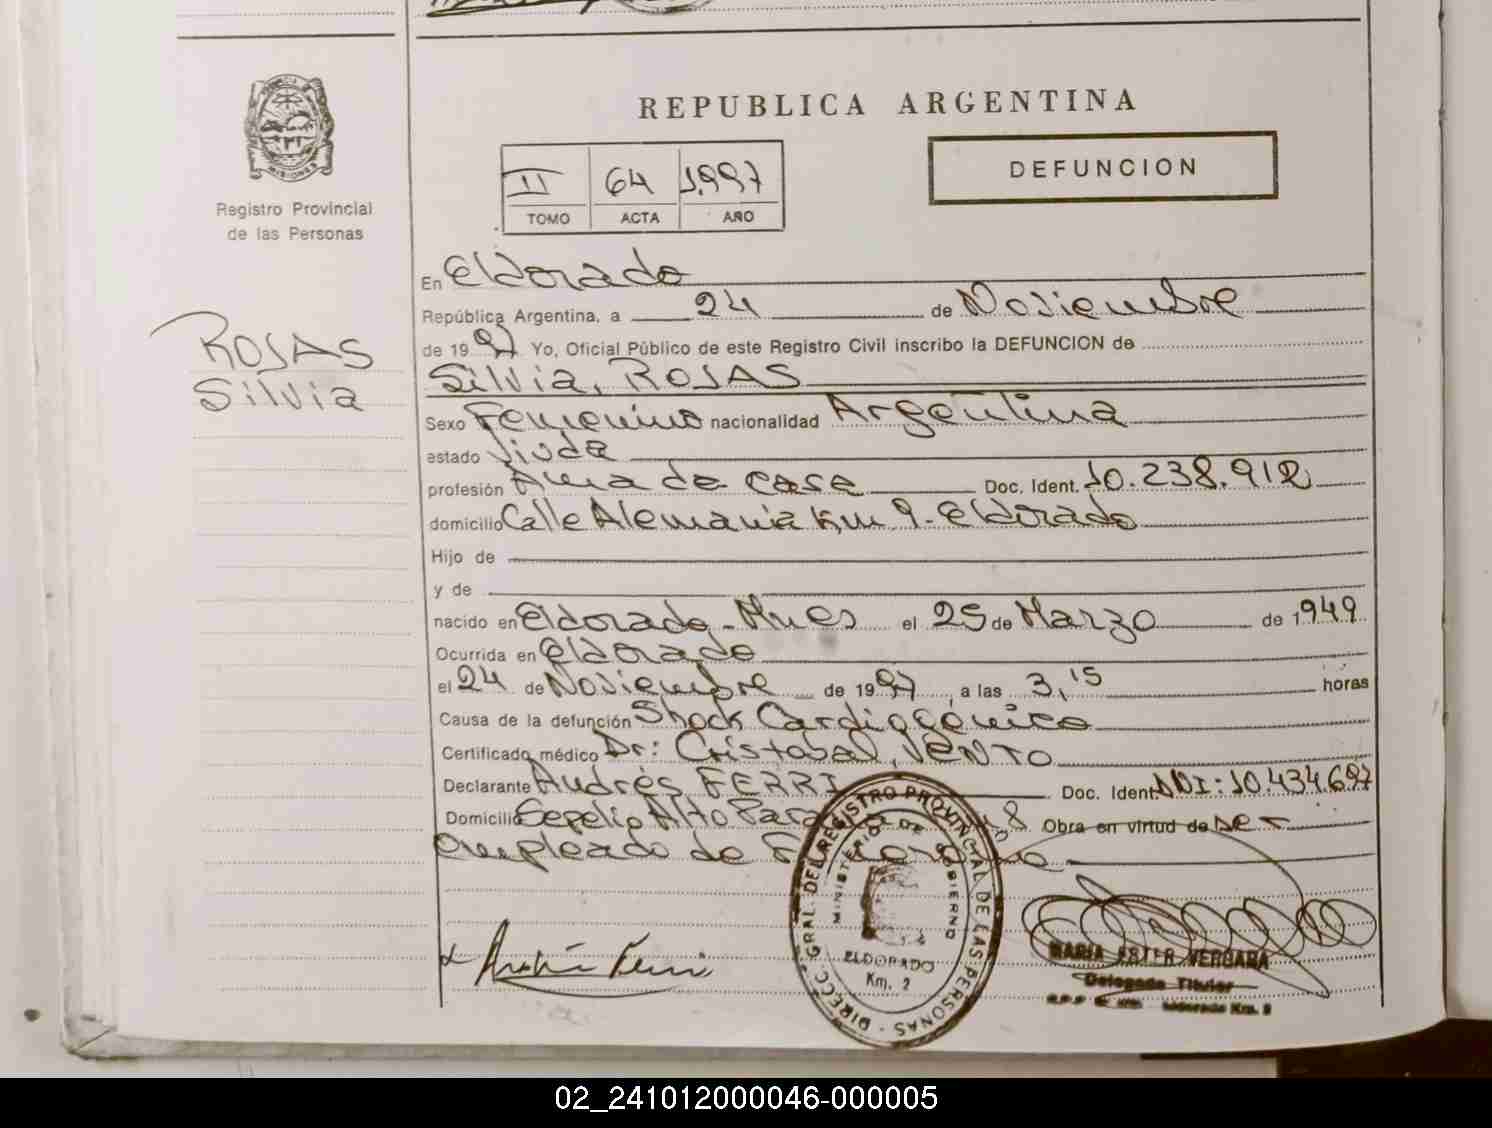 REPUBLICA ARGENTINA
DEFUNCION
II 64 1.997
TOMO ACTA AÑO
MISIONES
Registro Provincial
de las Personas
ROSAS
Silvia
En Eldorado
República Argentina, a 24 de Noviembre
de 1997 Yo, Oficial Público de este Registro Civil inscribo la DEFUNCION de
Silvia, ROSAS
Sexo Femenino nacionalidad Argentina
estado Viuda
profesión Ama de casa Doc. Ident. 10.238.912
domicilio Calle Alemania Km 9 - Eldorado
Hijo de
y de
nacido en Eldorado - Mnes el 25 de Marzo de 1949
Ocurrida en Eldorado
el 24 de Noviembre de 1997, a las 3,15 horas
Causa de la defunción Shock Cardiogénico
Certificado médico Dr: Cristobal, VENTO
Declarante Andrés FERRI Doc. Ident. DNI: 10.434.697
Domicilio Sepelio Alto 8 Obra en virtud de ser
empleado de
DIRECC. GRAL. DEL REGISTRO PROVINCIAL DE LAS PERSONAS
MINISTERIO DE GOBIERNO
ELDORADO
Km. 2
MARIA ESTER VERGARA
Delegada Titular
02_241012000046-000005